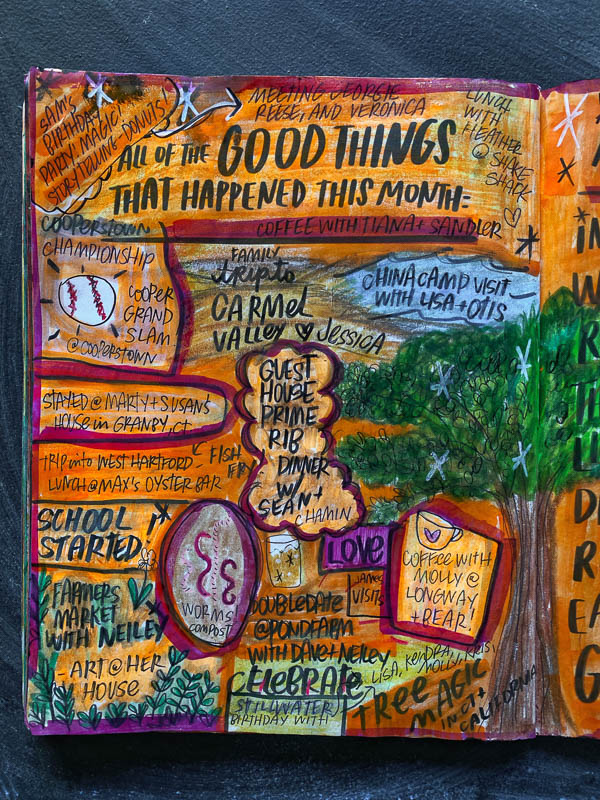 SAM'S
BIRTHDAY
PARTY MAGIC!
STORYTELLING DONUTS!
MEETING GEORGIE
REESE, AND VERONICA
LUNCH
WITH
HEATHER
@ SHAKE
SHACK
ALL OF THE GOOD THINGS
THAT HAPPENED THIS MONTH:
COFFEE WITH TIANA + SANDLER
COOPERSTOWN
CHAMPIONSHIP
COOPER
GRAND
SLAM
@ COOPERSTOWN
FAMILY
trip to
CARMEL
VALLEY JESSICA
CHINA CAMP VISIT
WITH LISA + OTIS
GUEST
HOUSE
PRIME
RIB
DINNER
W/
SEAN +
CHAMIN
STAYED @ MARTY + SUSAN'S
HOUSE in GRANBY, CT
TRIP into WEST HARTFORD - FISH
LUNCH @ MAX'S OYSTER BAR
SCHOOL
STARTED!
WORMS
COMPOST
LOVE
JAMES
VISITS
COFFEE WITH
MOLLY @
LONGWAY
+ BEAR!
FARMERS
MARKET
WITH NEILEY
- ART @ HER
HOUSE
DOUBLE DATE
@ POND FARM
WITH DAVE + NEILEY
CELEBRATE
STILLWATER
BIRTHDAY WITH
LISA, KENDRA,
MOLLY, KRIS,
TREE MAGIC
IN CT +
CALIFORNIA